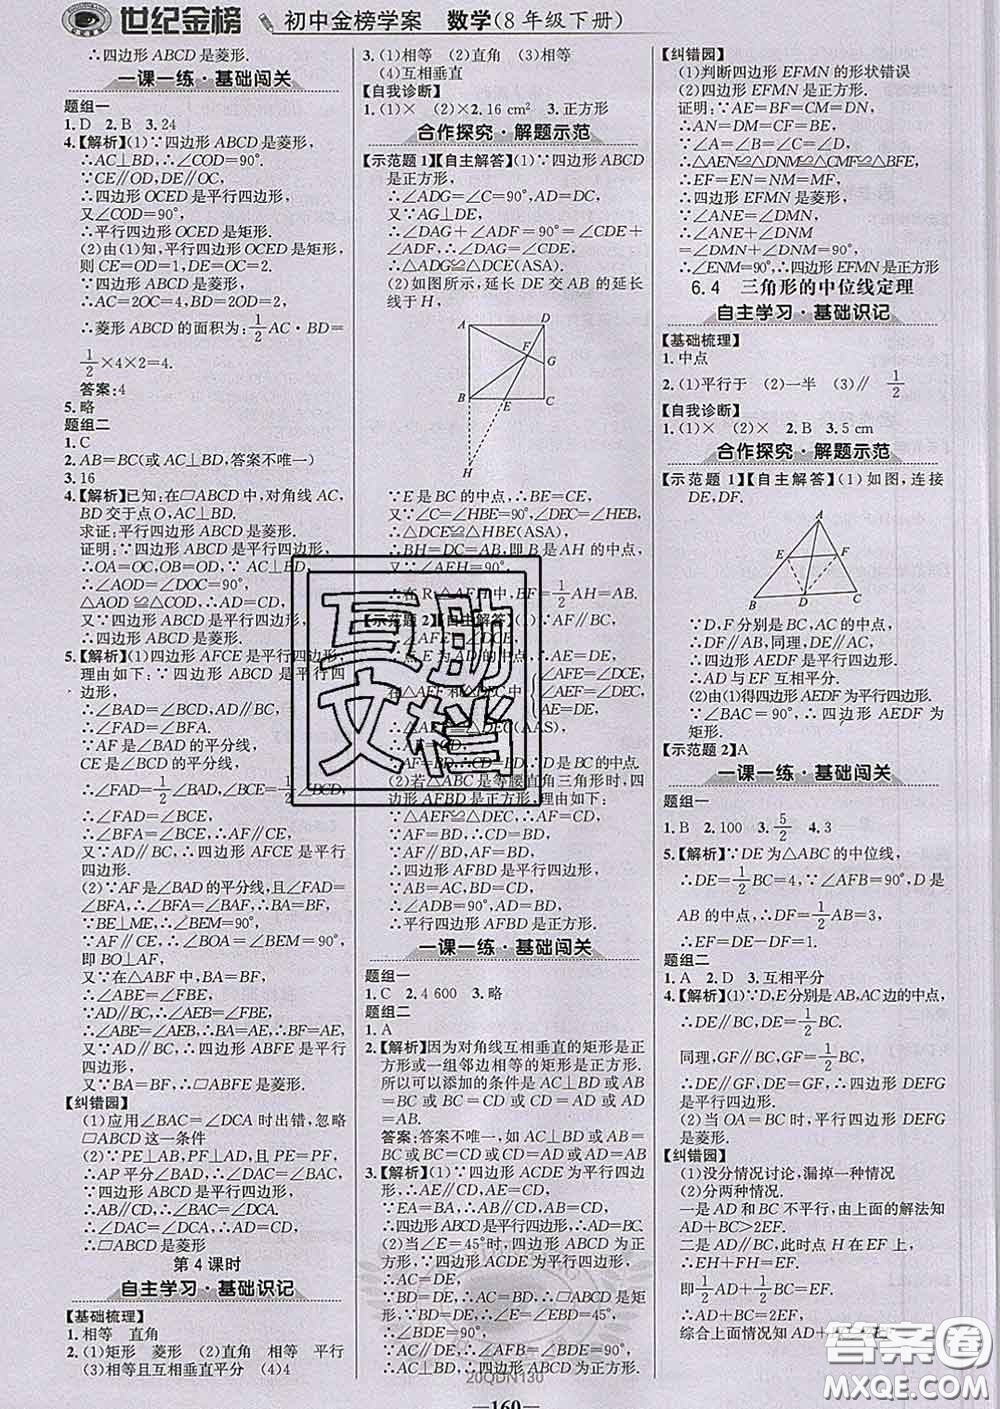 世纪金榜 初中金榜学案 数学(8年级下册)
∴四边形ABCD是菱形.
一课一练·基础闯关
题组一
1.D 2.B 3.24
4.【解析】(1)∵四边形ABCD是菱形,
∴AC⊥BD,∴∠COD=90°.
∵CE∥OD,DE∥OC,
∴四边形OCED是平行四边形,
又∠COD=90°,
∴平行四边形OCED是矩形.
(2)由(1)知,平行四边形OCED是矩形,
则CE=OD=1,DE=OC=2.
∵四边形ABCD是菱形,
∴AC=2OC=4,BD=2OD=2.
∴菱形ABCD的面积为:1/2AC·BD=
1/2×4×2=4.
答案:4
5.略
题组二
1.C
2.AB=BC(或AC⊥BD,答案不唯一)
3.16
4.【解析】已知:在□ABCD中,对角线AC,
BD交于点O,AC⊥BD.
求证:平行四边形ABCD是菱形.
证明:∵四边形ABCD是平行四边形,
∴OA=OC,OB=OD,∵AC⊥BD,
∴∠AOD=∠DOC=90°,
△AOD≌△DOC,∴AD=CD,
又∵四边形ABCD是平行四边形,
∴四边形ABCD是菱形.
5.【解析】(1)四边形AFCE是平行四边形,
理由如下:∵四边形ABCD是平行四
边形,
∴∠BAD=∠BCD,AD∥BC,
∴∠FAD=∠BFA.
∵AF是∠BAD的平分线,
CE是∠BCD的平分线,
∴∠FAD=1/2∠BAD,∠BCE=1/2∠BCD,
∴∠FAD=∠BCE,
∴∠BFA=∠BCE,∴AF∥CE,
又∵AD∥BC,∴四边形AFCE是平行
四边形.
(2)∵AF是∠BAD的平分线,且∠FAD=
∠BFA,∴∠BAF=∠BFA,∴AB=BF.
∵BE⊥ME,∴∠BEM=90°,
∵AF∥CE,∴∠BOA=∠BEM=90°,
即BO⊥AF,
∴∠ABE=∠FBE,
∵AD∥BC,∴∠AEB=∠FBE,
∴∠ABE=∠AEB,∴BA=AE,∴AE=BF,
又∵AD∥BC,∴四边形ABFE是平行
四边形,
又∵BA=BF,∴□ABFE是菱形.
【纠错园】
(1)应用∠BAC=∠DCA时出错,忽略
□ABCD这一条件
(2)∵PE⊥AB,PF⊥AD,且PE=PF,
∴AP平分∠BAD,∴∠DAC=∠BAC,
∵四边形ABCD是平行四边形,
∴AB∥CD,∴∠DCA=∠BAC.
∴∠DAC=∠DCA,∴AD=CD,
∴□ABCD是菱形
第4课时
自主学习·基础识记
【基础梳理】
1.相等 直角
2.(1)矩形 菱形 (2)直角 相等 平行
(3)相等且互相垂直平分 (4)4
3.(1)相等 (2)直角 (3)相等
(4)互相垂直
【自我诊断】
1.(1)× (2)× 2.16 cm² 3.正方形
合作探究·解题示范
【示范题1】【自主解答】(1)∵四边形ABCD
是正方形,
∴∠ADG=∠C=90°,AD=DC,
又∵AG⊥DE,
∴∠DAG+∠ADF=90°=∠CDE+
∠ADF,∴∠DAG=∠CDE,
∴△ADG≌△DCE(ASA).
(2)如图所示,延长DE交AB的延长
线于H,
A D
F
G
B E C
H
∵E是BC的中点,∴BE=CE,
又∵∠C=∠HBE=90°,∠DEC=∠HEB,
∴△DCE≌△HBE(ASA),
∴BH=DC=AB,即B是AH的中点,
又∵∠AFH=90°,
∴在Rt△AFH中,BF=1/2AH=AB.
【示范题2】【自主解答】(1)∵AF∥BC,
∴∠AFE=∠DCE,
∵点E为AD的中点,∴AE=DE,
在△AEF和△DEC中{∠AFE=∠DCE,
∠AEF=∠DEC,
AE=DE,
∴AF=CD,∵AF=BD,
∴BD=CD,∴D是BC的中点.
(2)若△ABC是等腰直角三角形时,四
边形AFBD是正方形,理由如下:
∵△AEF≌△DEC,∴AF=CD,
∵AF=BD,∴CD=BD;
∵AF∥BD,AF=BD,
∴四边形AFBD是平行四边形,
∵AB=AC,BD=CD,
∴AD⊥BC,∴∠ADB=90°,
∴平行四边形AFBD是正方形.
一课一练·基础闯关
题组一
1.C 2.4 600 3.略
题组二
1.A
2.【解析】因为对角线互相垂直的矩形是正
方形或一组邻边相等的矩形是正方形.
所以可以添加的条件是AC⊥BD或AB=
BC或BC=CD或CD=AD或AD=
AB.
答案:答案不唯一,如AC⊥BD或AB=
BC或BC=CD或CD=AD或AD=AB
3.【解析】(1)∵四边形ACDE为平行四边
形,∴AE∥CD,AE=CD,
∵EA=BA,∴AB∥CD,AB=CD,
∴四边形ABCD是平行四边形,∴AD=BC.
(2)当∠E=45°时,四边形ABCD为正
方形,∵四边形ACDE为平行四边形,
∴AC=DE,
∵AC=BD,∴BD=DE,
∵BD=DE,∠E=∠EBD=45°,
∴∠BDE=90°,
∵AC∥DE,∴AC⊥BD,
∴四边形ABCD为正方形.
【纠错园】
(1)判断四边形EFMN的形状错误
(2)四边形EFMN是正方形.
证明:∵AE=BF=CM=DN,
∴AN=DM=CF=BE,
∵∠A=∠B=∠C=∠D,
∴△AEN≌△DNM≌△CMF≌△BFE,
∴EF=EN=NM=MF,
∴四边形EFMN是菱形,
∵∠ANE=∠DMN,
∴∠ANE+∠DNM
=∠DMN+∠DNM=90°,
∴∠ENM=90°,∴四边形EFMN是正方形
6.4 三角形的中位线定理
自主学习·基础识记
【基础梳理】
1.中点
2.(1)平行于 (2)一半 (3)∥ 1/2
【自我诊断】
1.(1)× (2)× 2.B 3.5 cm
合作探究·解题示范
【示范题1】【自主解答】(1)如图,连接
DE,DF.
A
E F
B D C
∵D,F分别是BC,AC的中点,
∴DF∥AB,同理,DE∥AC,
∴四边形AEDF是平行四边形,
∴AD与EF互相平分.
(2)由(1)得四边形AEDF为平行四边形,
∵∠BAC=90°,∴四边形AEDF为
矩形.
【示范题2】A
一课一练·基础闯关
题组一
1.B 2.100 3.5/2 4.3
5.【解析】∵DE为△ABC的中位线,
∴DE=1/2BC=4,∵∠AFB=90°,D是
AB的中点,∴DF=1/2AB=3,
∴EF=DE-DF=1.
题组二
1.A 2.D 3.互相平分
4.【解析】(1)∵D,E分别是AB,AC边的中点,
∴DE∥BC,DE=1/2BC.
同理,GF∥BC,GF=1/2BC,
∴DE∥GF,DE=GF,∴四边形DEFG
是平行四边形.
(2)当OA=BC时,平行四边形DEFG
是菱形.
【纠错园】
(1)没分情况讨论,漏掉一种情况
(2)分两种情况.
一是AD和BC不平行,由上面的解法知
AD+BC>2EF.
二是AD∥BC,此时点H在EF上,
∴EH+FH=EF.
即1/2AD+1/2BC=EF,
∴AD+BC=2EF.
综合上面情况知AD+BC
互助
文档
20QDN130
—160—
答案圈
MXQE.COM